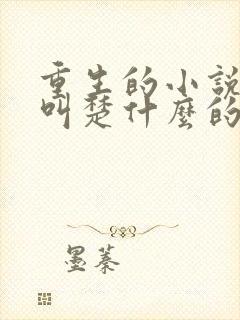 重生的小說
叫楚什麼的
墨蓁